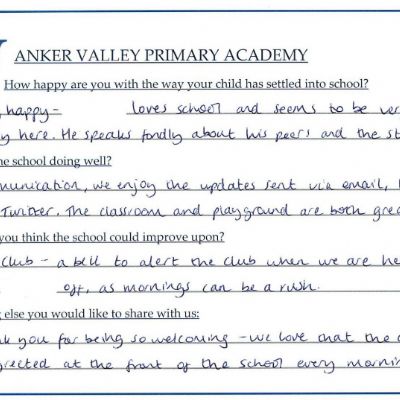 ANKER VALLEY PRIMARY ACADEMY
How happy are you with the way your child has settled into school?
happy - loves school and seems to be
here. He speaks fondly about his peers and the
he school doing well?
munication, we enjoy the updates sent via email,
Twitter. The classroom and playground are both
you think the school could improve upon?
club - a bell to alert the club when we are
off, as mornings can be a rush.
else you would like to share with us:
you for being so welcoming - we love that the
greeted at the front of the school every